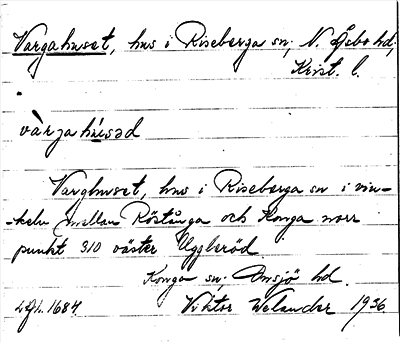 Vargahuset, hus i Riseberga sn; N. Åsbo hd;
Krist. l.
vàrjahúsəd
Varghuset, hus i Riseberga sn i vin-
-keln mellan Röstånga och Konga norr
punkt 310 väster Uggleröd
Konga sn, Onsjö hd.
1684. Viktor Welander 1936.